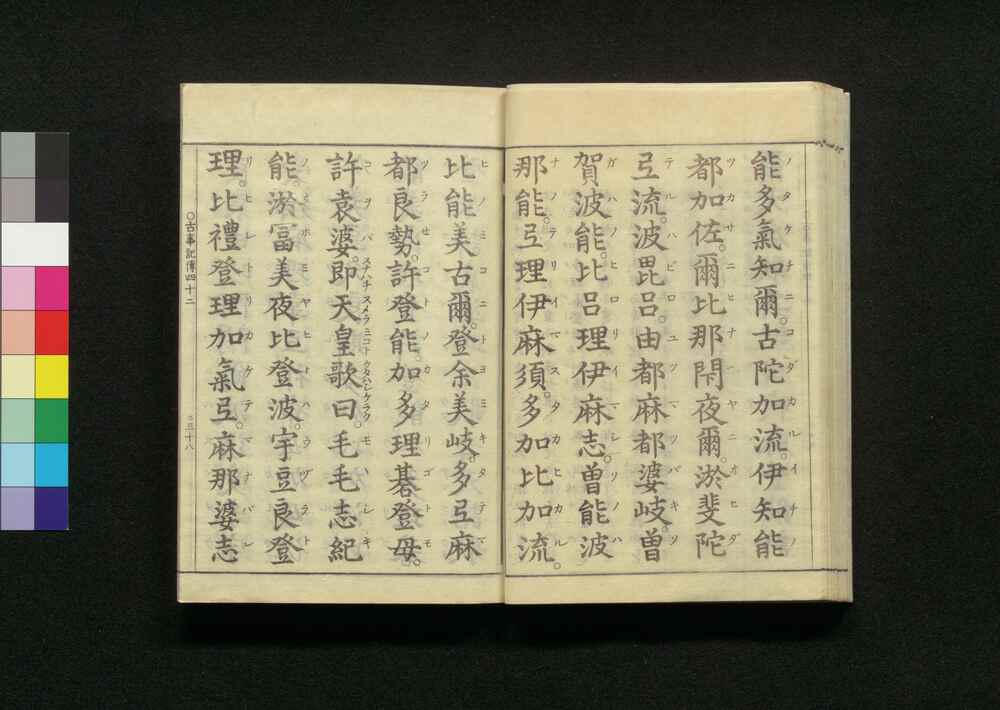 能多氣知爾。古陀加流。伊知能
都加佐。爾比那閇夜爾。淤斐陀
弖流。波毘呂。由都麻都婆岐。曾
賀波能。比呂理伊麻志。曾能波
那能。弖理伊麻須。多加比加流。
比能美古爾。登余美岐。多弖麻
都良勢。許登能。加多理碁登母。
許袁婆。即天皇歌曰。毛毛志紀
能。淤冨美夜比登波。宇豆良登
理。比禮登理加氣弖。麻那婆志
〇古事記傳四十二
〇三十八